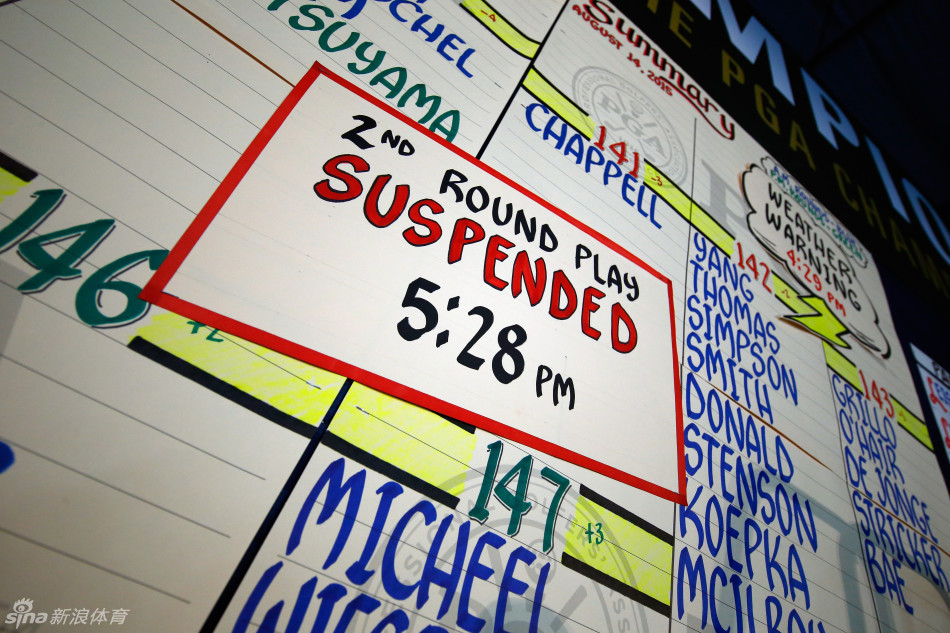 CHEL
TSUYAMA
-4
Summary
AUGUST 14, 2015
THE PGA CHAM
MPIO
141
-3
CHAPPELL
2ND ROUND PLAY
SUSPENDED
5:28 PM
WEATHER
WARNING
4:29 PM
142
YANG
THOMAS
SIMPSON
SMITH
DONALD
STENSON
KOEPKA
MCILROY
143
GRILLO
O'HAIR
DE JONGE
STRICKER
BAE
146
+2
147
+3
MICHEEL
sina新浪体育